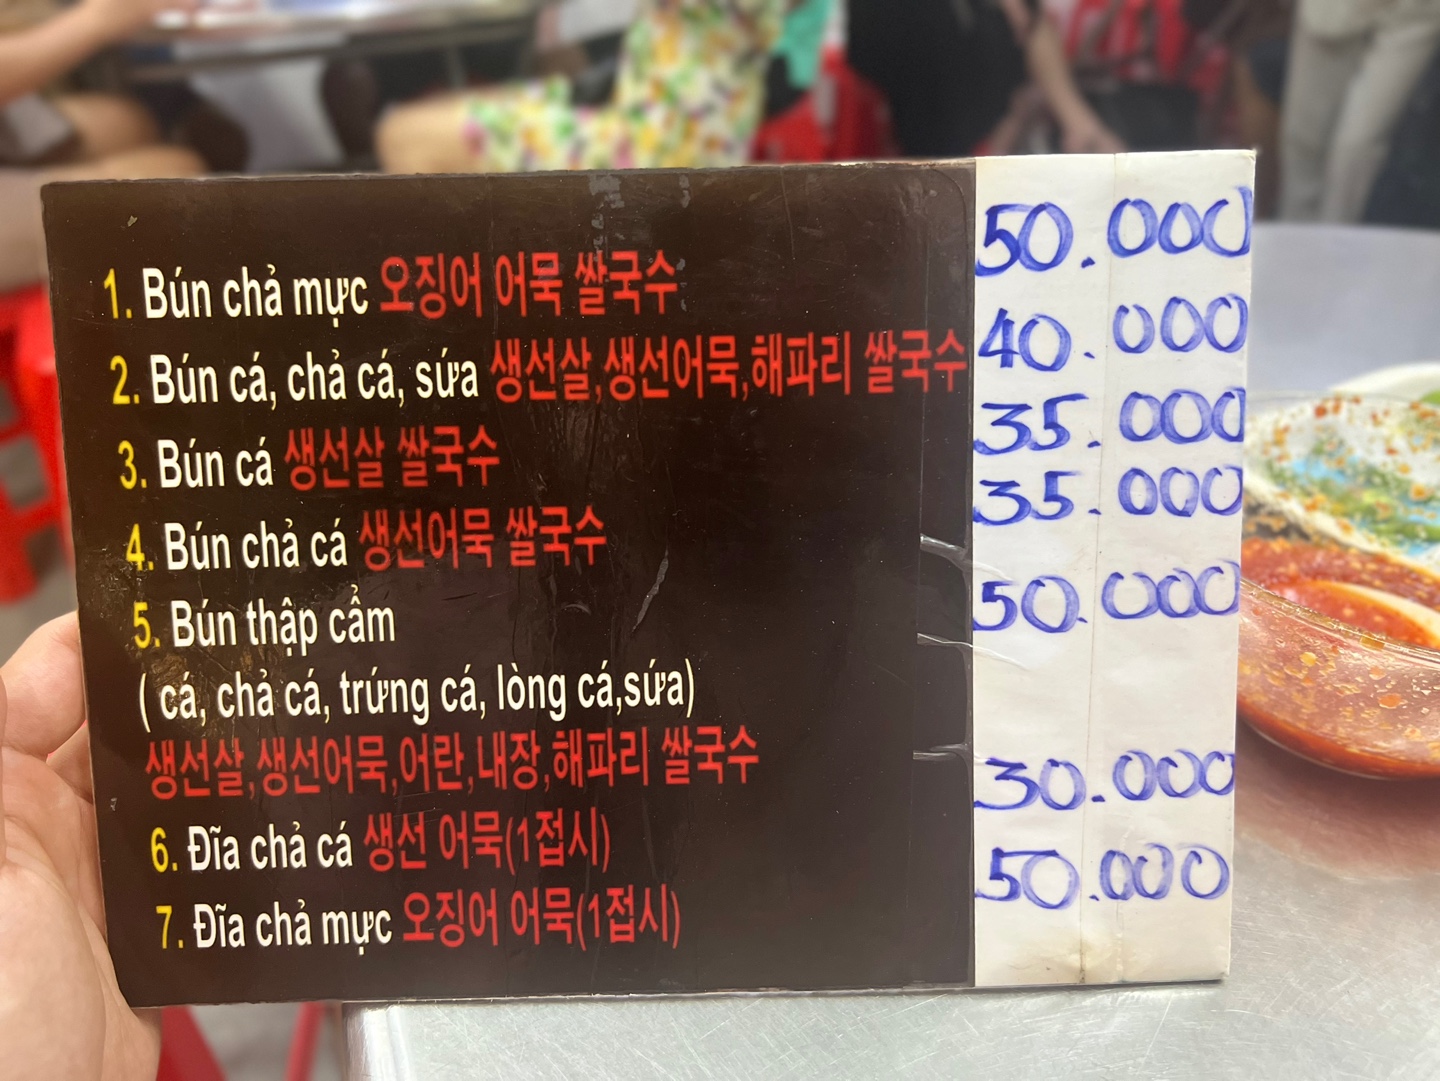 1. Bún chả mực 오징어 어묵 쌀국수 50.000
2. Bún cá, chả cá, sứa 생선살,생선어묵,해파리 쌀국수 40.000
3. Bún cá 생선살 쌀국수 35.000
4. Bún chả cá 생선어묵 쌀국수 35.000
5. Bún thập cẩm 50.000
( cá, chả cá, trứng cá, lòng cá,sứa)
생선살,생선어묵,어란,내장,해파리 쌀국수
6. Đĩa chả cá 생선 어묵(1접시) 30.000
7. Đĩa chả mực 오징어 어묵(1접시) 50.000